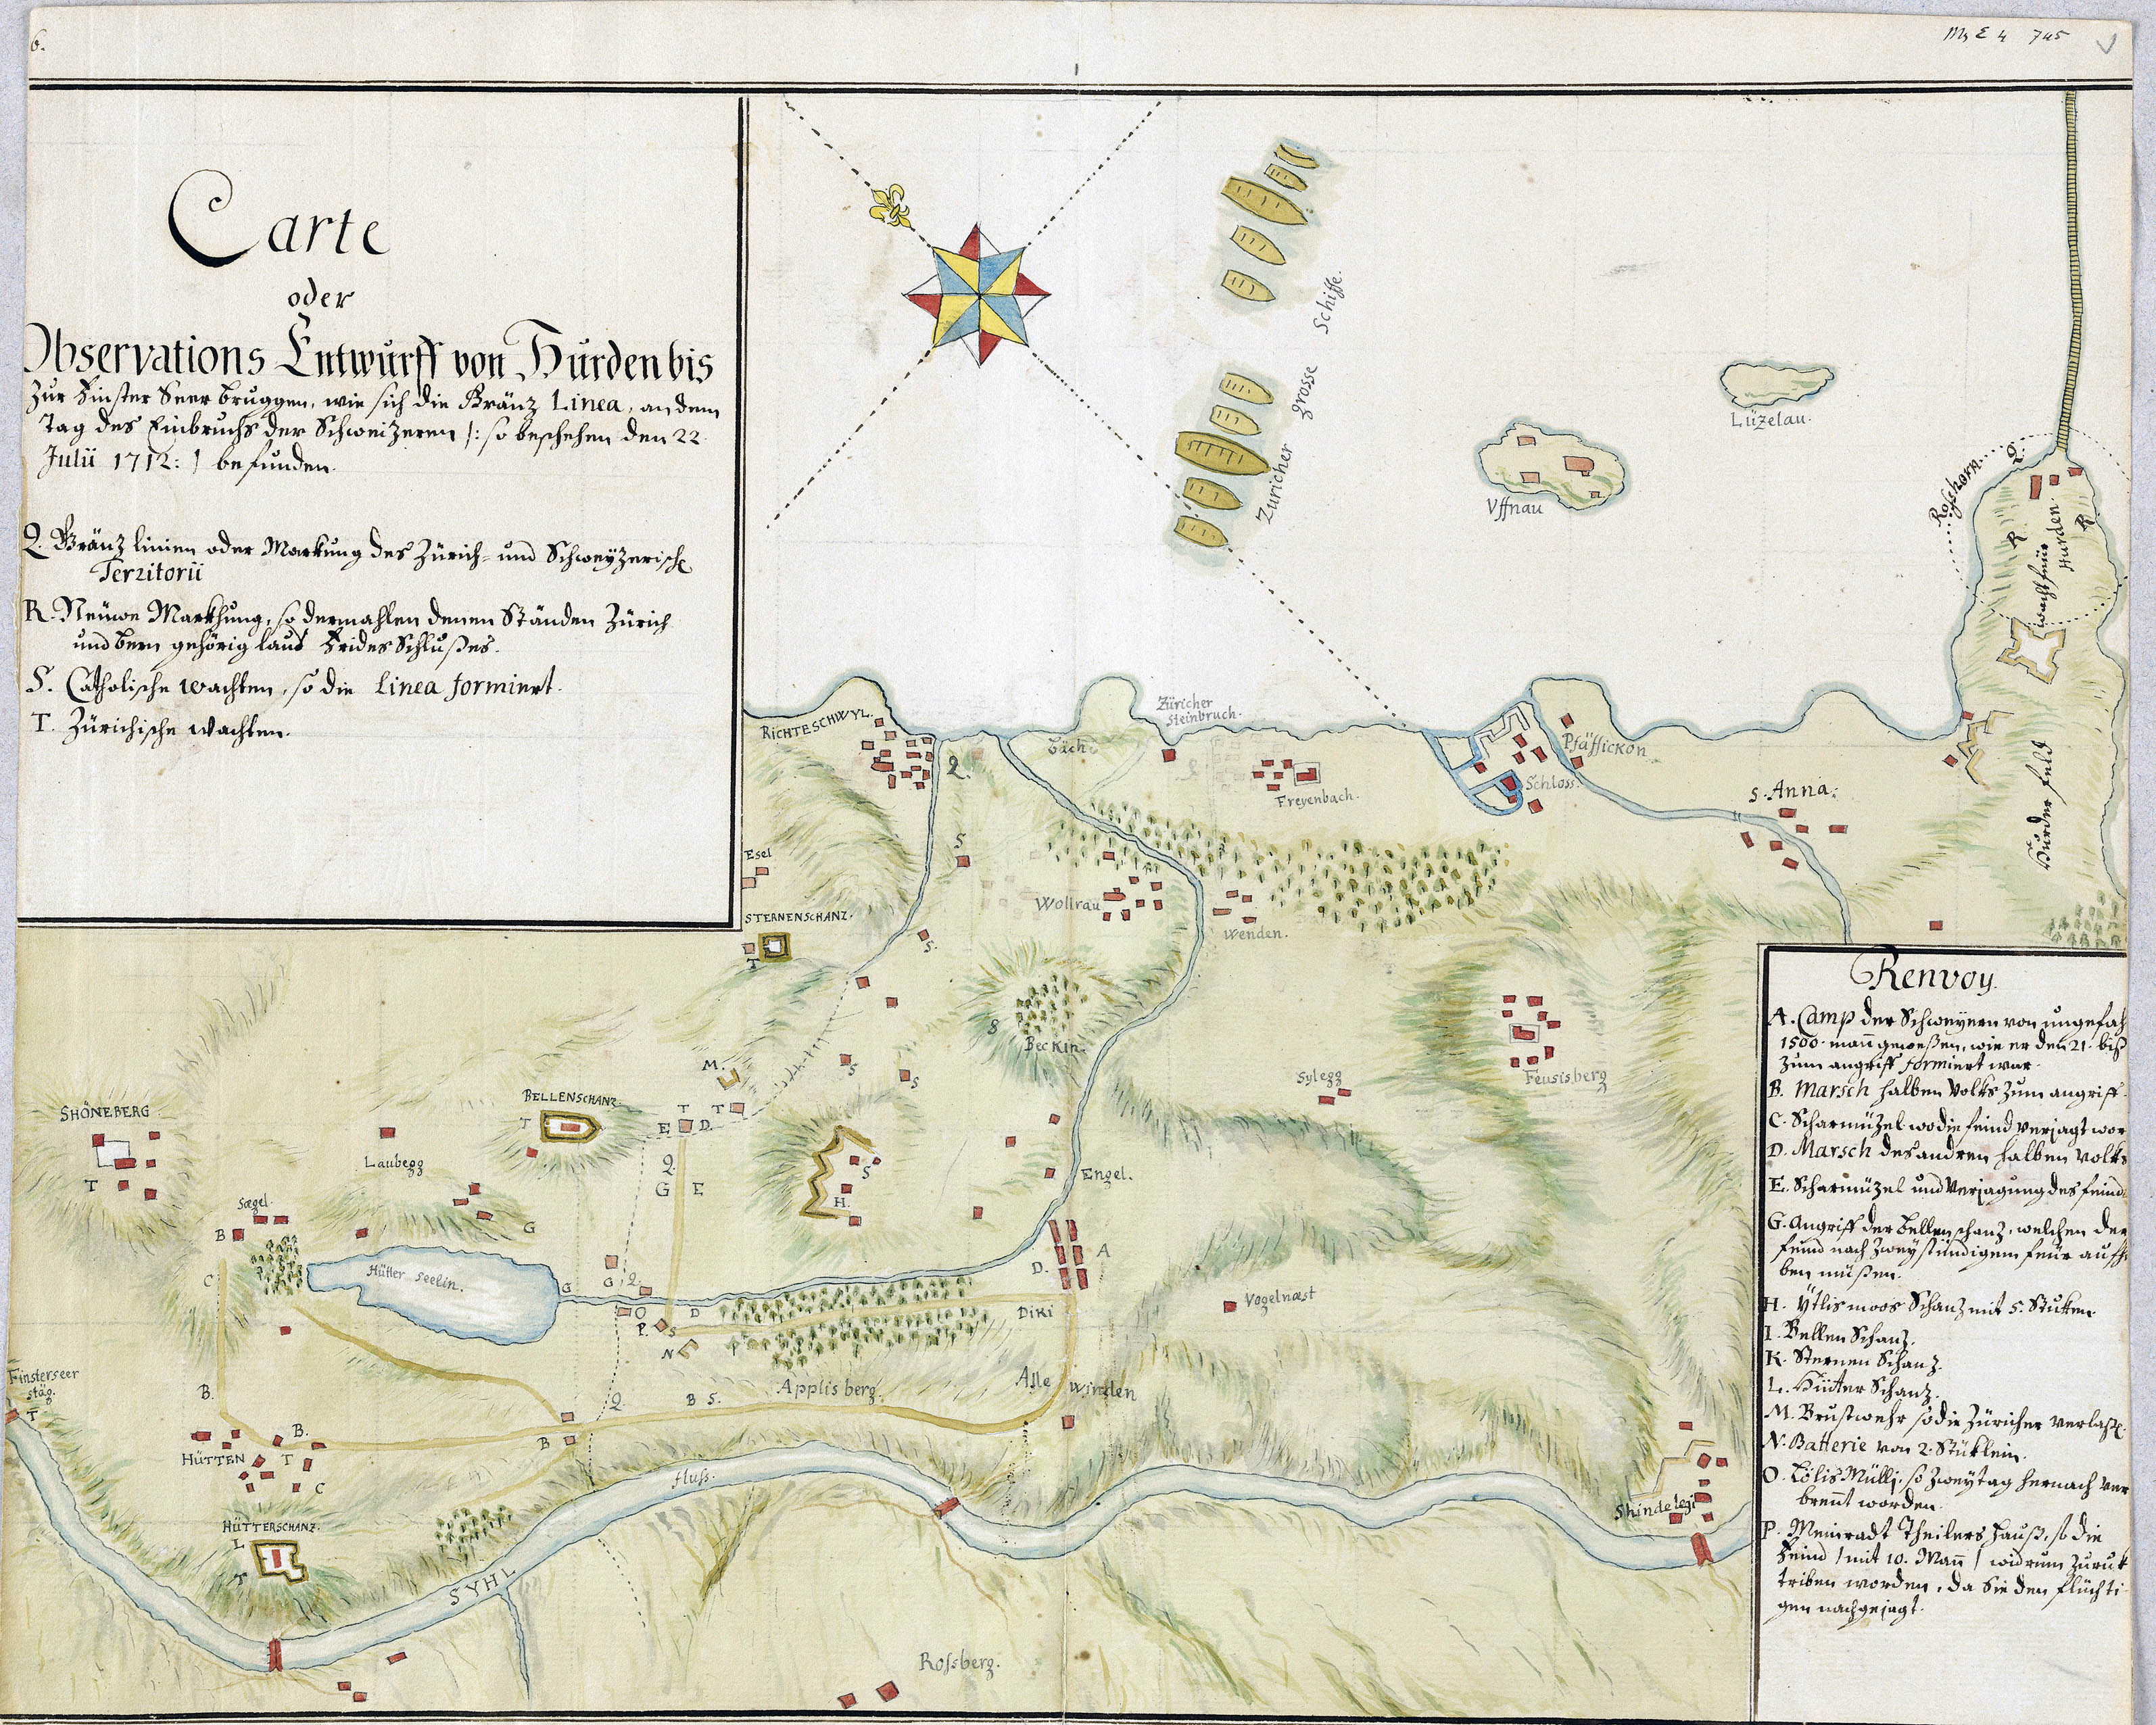 6.
Carte
oder
Observations Entwurff von Hurden bis
Zur Finster Seer bruggen, wie sich die Gränz Linea, an dem
Tag des Einbruchs der Schweizeren /: so beschehen den 22.
Julii 1712:/ befunden.
Q. Gränz linien oder Markung des Zürich- und Schweyzerisch
Territorii
R. Neüwe Markhung, so dermahlen denen Ständen Zürich
und bern gehörig laut Frides Schlußes.
S. Catholische wachten, so die Linea formiert.
T. Zürichische wachten.
Züricher grosse Schiffe.
Lüzelau.
Vffnau
Roschorn
Q.
R.
Hurden
R
wachtfeür
Hurder feld
RICHTESCHWYL.
Q.
bäch
Züricher
steinbruch.
Freyenbach.
Pfäffickon
Schloss.
S. Anna.
Esel
STERNENSCHANZ.
T
S
S.
Wollrau
Wenden.
S
Beckin.
Sylegg
Feusisberg
M.
S
S
BELLENSCHANZ.
T
T T
E D.
Q.
G E
S
H.
Engel.
SHÖNEBERG
T
Laubegg
Sægel
B
C
G
Hütter Seelin.
G
G Q.
O D
P. S
N
D.
A
Diki
Vogelnæst
Finsterseer
stäg.
T
B.
Q.
B S.
Applisberg.
Alle winden
B.
HÜTTEN
T
C
B
HÜTTERSCHANZ.
L
T
SYHL
fluss.
Shindelegi
Rossberg.
Renvoy.
A. Camp der Schweyzern von ungefah
1500. mann gewesen, wie er den 21. biß
zum angriff formiert war.
B. Marsch halben Volks zum angriff.
C. Scharmüzel wo die feind verjagt wor
D. Marsch des andren halben Volks
E. Scharmüzel und Verjagung des feinds
G. Angriff der bellenschanz, welchen der
feind nach zweystündigem feür aufhe
ben müßen.
H. Ytlismoos Schanz mit 5. Stuken.
I. Bellen Schanz.
K. Sternen Schanz.
L. Hütter Schanz.
M. Brustwehr so die Züricher verlaß.
N. Batterie von 2. Stüklein.
O. Lölis Mülli, so zwey tag hernach ver
brennt worden.
P. Meinradt Theilers Hauß, so die
Feind / mit 10. Mañ / widrum zuruk
triben worden, da Sie den flüchti
gen nachgejagt.